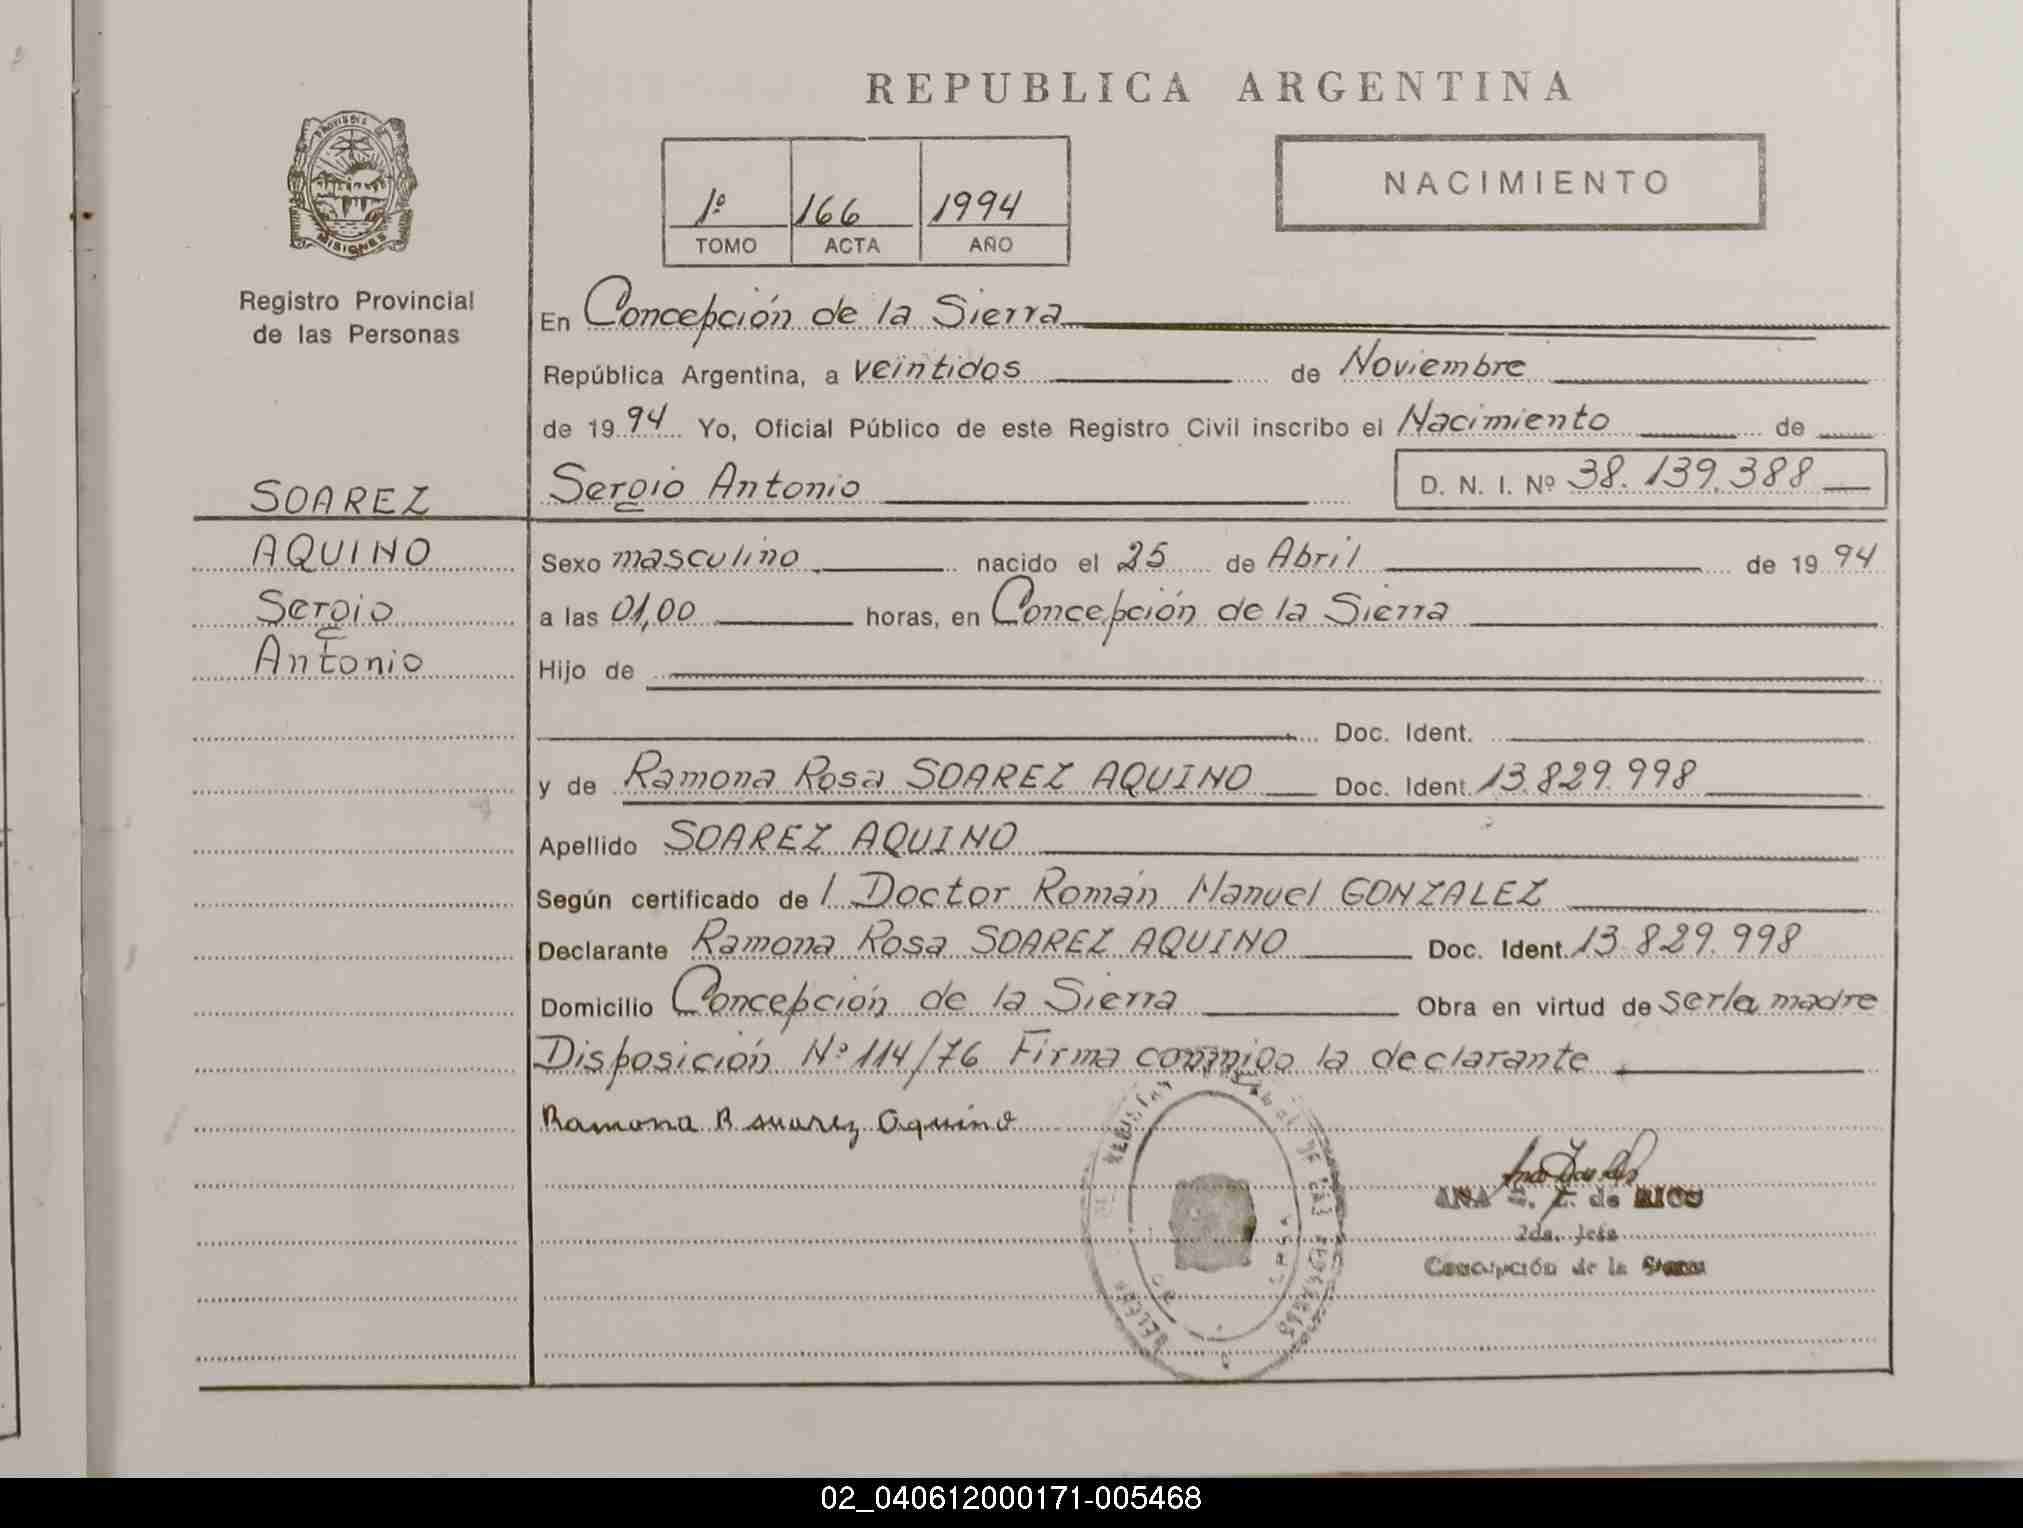 REPUBLICA ARGENTINA
PROVINCIA DE MISIONES
Registro Provincial
de las Personas
1º 166 1994
TOMO ACTA AÑO
NACIMIENTO
En Concepción de la Sierra
República Argentina, a veintidos de Noviembre
de 1994 Yo, Oficial Público de este Registro Civil inscribo el Nacimiento de
Sergio Antonio D. N. I. Nº 38.139.388
SOAREZ
AQUINO
Sergio
Antonio
Sexo masculino nacido el 25 de Abril de 1994
a las 01,00 horas, en Concepción de la Sierra
Hijo de
Doc. Ident.
y de Ramona Rosa SOAREZ AQUINO Doc. Ident. 13.829.998
Apellido SOAREZ AQUINO
Según certificado de l Doctor Román Manuel GONZALEZ
Declarante Ramona Rosa SOAREZ AQUINO Doc. Ident. 13.829.998
Domicilio Concepción de la Sierra Obra en virtud de ser la madre
Disposición Nº 114/76 Firma conmigo la declarante
Ramona R suarez Aquino
ANA de RICO
2da. Jefe
Concepción de la Sierra
02_040612000171-005468